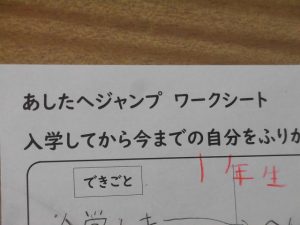 あしたへジャンプ ワークシート
入学してから今までの自分をふりか
1年生
できごと